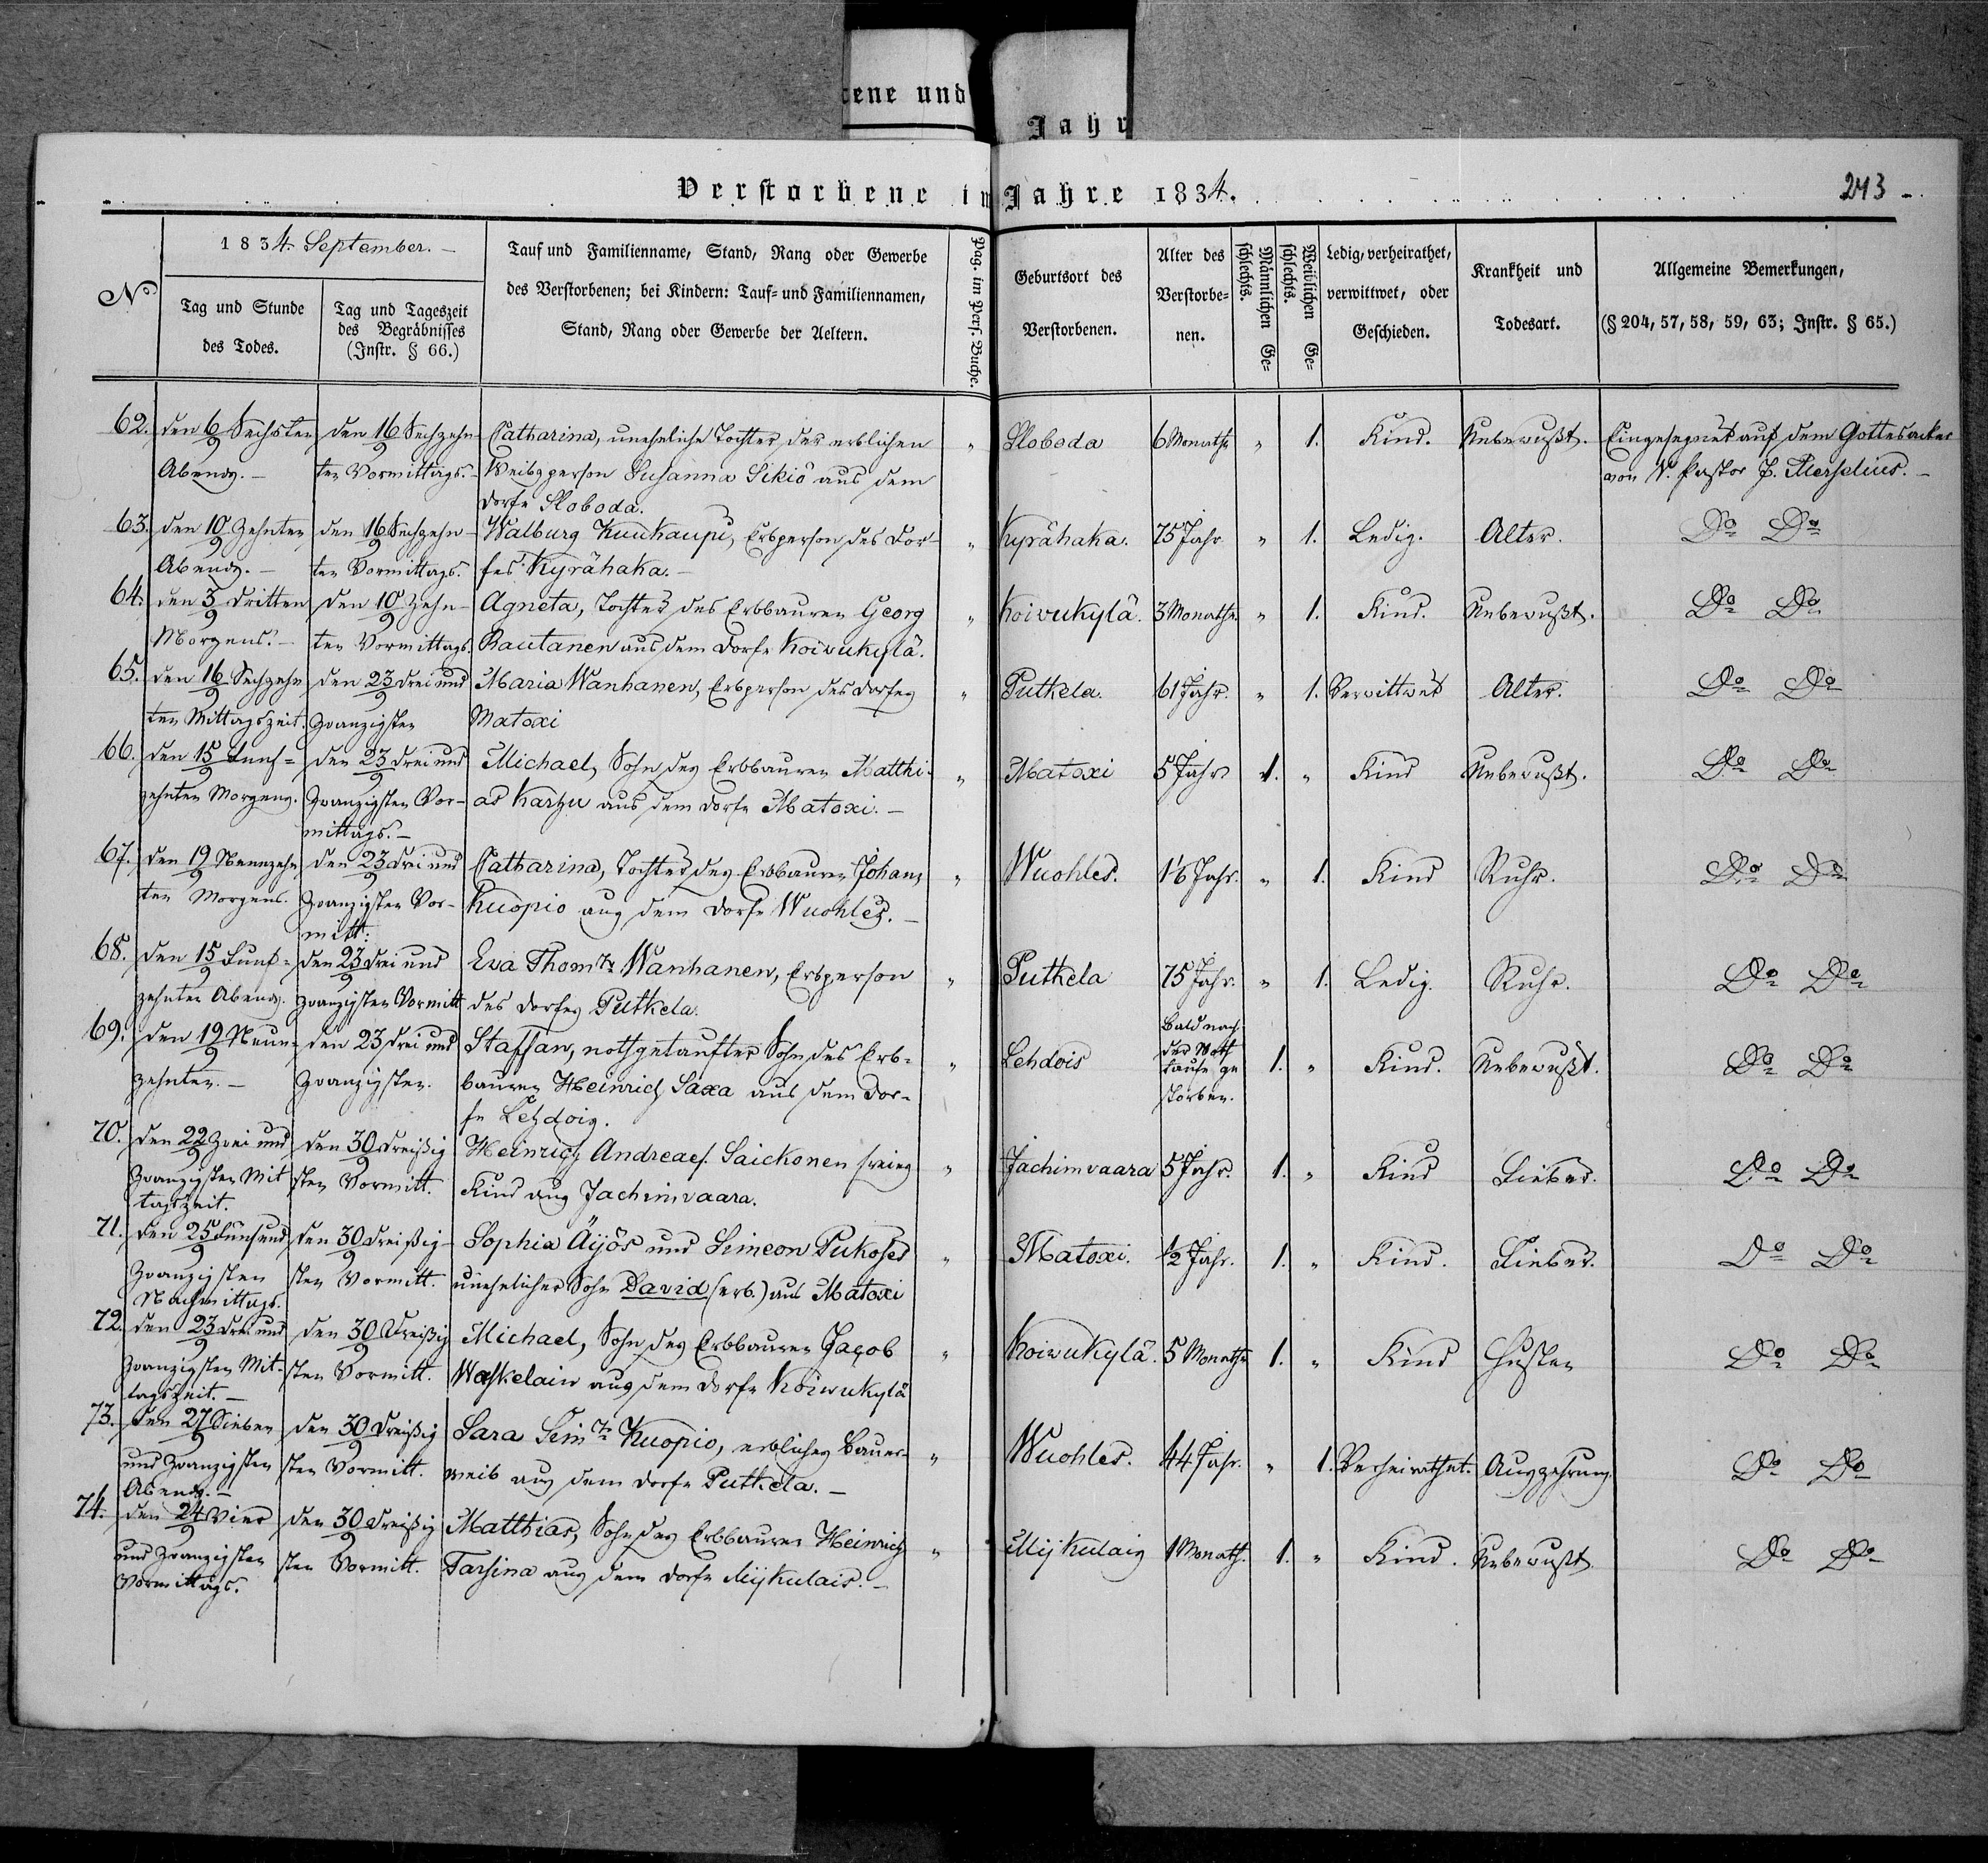 ene und
Jahr
Verstorbene im Jahre 1834.
243
N°
1834 September.
Tag und Stunde des Todes.
Tag und Tageszeit des Begräbnisses (Instr. § 66.)
Tauf und Familienname, Stand, Rang oder Gewerbe des Verstorbenen; bei Kindern: Tauf- und Familiennamen, Stand, Rang oder Gewerbe der Aeltern.
Pag. im Pers. Buche.
Geburtsort des Verstorbenen.
Alter des Verstorbenen.
Männlichen Geschlechts.
Weiblichen Geschlechts.
Ledig, verheirathet, verwittwet, oder Geschieden.
Krankheit und Todesart.
Allgemeine Bemerkungen, (§ 204, 57, 58, 59, 63; Instr. § 65.)
62. den 6/9 Sechsten Abends. den 16/9 Sechzehnten Vormittags. Catharina, uneheliche Tochter der erblichen Weibsperson Susanna Sikiö aus dem Dorfe Sloboda. " Sloboda 6 Monathe " 1. Kind. Unbewußt. Eingesegnet auf dem Gottesacker von
63. den 10/9 Zehnten Abends. den 16/9 Sechzehnten Vormittags. Walburg Kuukaupi, Erbperson des Dorfes Kyrähaka. " Kyrähaka. 75 Jahr " 1. Ledig. Alter. Do Do
64. den 3/9 dritten Morgens. den 10/9 Zehnten Vormittags. Agneta, Tochter des Erbbauern Georg Rautanen aus dem Dorfe Koivukylä. " Koivukylä. 3 Monathe " 1. Kind. Unbewußt. Do Do
65. den 16/9 Sechzehnten Mittagszeit. den 23/9 drei und Zwanzigsten Maria Wanhanen, Erbperson des Dorfes Matoxi " Putkela. 61 Jahr. " 1. Verwittwet Alter. Do Do
66. den 15/9 Funfzehnten Morgens. den 23/9 drei und Zwanzigsten Vormittags. Michael, Sohn des Erbbauern Matthias Karhu aus dem Dorfe Matoxi. " Matoxi 5 Jahr 1. " Kind Unbewußt. Do Do
67. den 19/9 Neunzehnten Morgens. den 23/9 drei und Zwanzigsten Vormitt: Catharina, Tochter des Erbbauern Johan, Kuopio aus dem Dorfe Wuohles. " Wuohles. 16 Jahr. " 1. Kind Ruhr. Do Do
68. den 15/9 Funfzehnten Abends. den 23/9 drei und zwanzigsten Vormitt Eva Thom Tr Wanhanen, Erbperson des Dorfes Putkela. " Putkela 75 Jahr. " 1. Ledig. Ruhr. Do Do
69. den 19/9 Neunzehnten. den 23 drei und Zwanzigsten. Staffan, nothgetaufter Sohn des Erbbauern Heinrich Saxa aus dem Dorfe Lehdois. " Lehdois Bald nach der Nothtaufe gestorben. 1. " Kind. Unbewußt. Do Do
70. den 22/9 Zwei und Zwanzigsten Mittagszeit. den 30/9 dreißigsten Vormitt. Heinrich Andreaes. Saickonen freies Kind aus Jachimvaara. " Jachimvaara 5 Jahr. 1. " Kind Fieber. Do Do
71. den 25/9 Fünf und Zwanzigsten Nachmittags. den 30/9 dreißigsten Vormitt. Sophia Äijös und Simeon Pukoses unehelicher Sohn David (erb.) aus Matoxi " Matoxi. 1/2 Jahr. 1. " Kind. Fieber. Do Do
72. den 23/9 drei und Zwanzigsten Mittagszeit. den 30/9 Dreißigsten Vormitt. Michael, Sohn des Erbbauern Jacob Waskelain aus dem Dorfe Koiwukylä " Koiwukylä. 5 Monathe 1. " Kind Husten Do Do
73. den 27/9 Sieben und Zwanzigsten Abends. den 30/9 Dreißigsten Vormitt. Sara Sim Tr Kuopio, erbliches Bauerweib aus dem Dorfe Putkela. " Wuohles. 44 Jahr. " 1. Verheirathet. Auszehrung. Do Do
74. den 24/9 Vier und Zwanzigsten Vormittags. den 30/9 Dreißigsten Vormitt. Matthias, Sohn des Erbbauern Heinrich Tarsina aus dem Dorfe Mijkulais. " Mijkulais 1 Monath. 1. " Kind. Unbewußt. Do Do